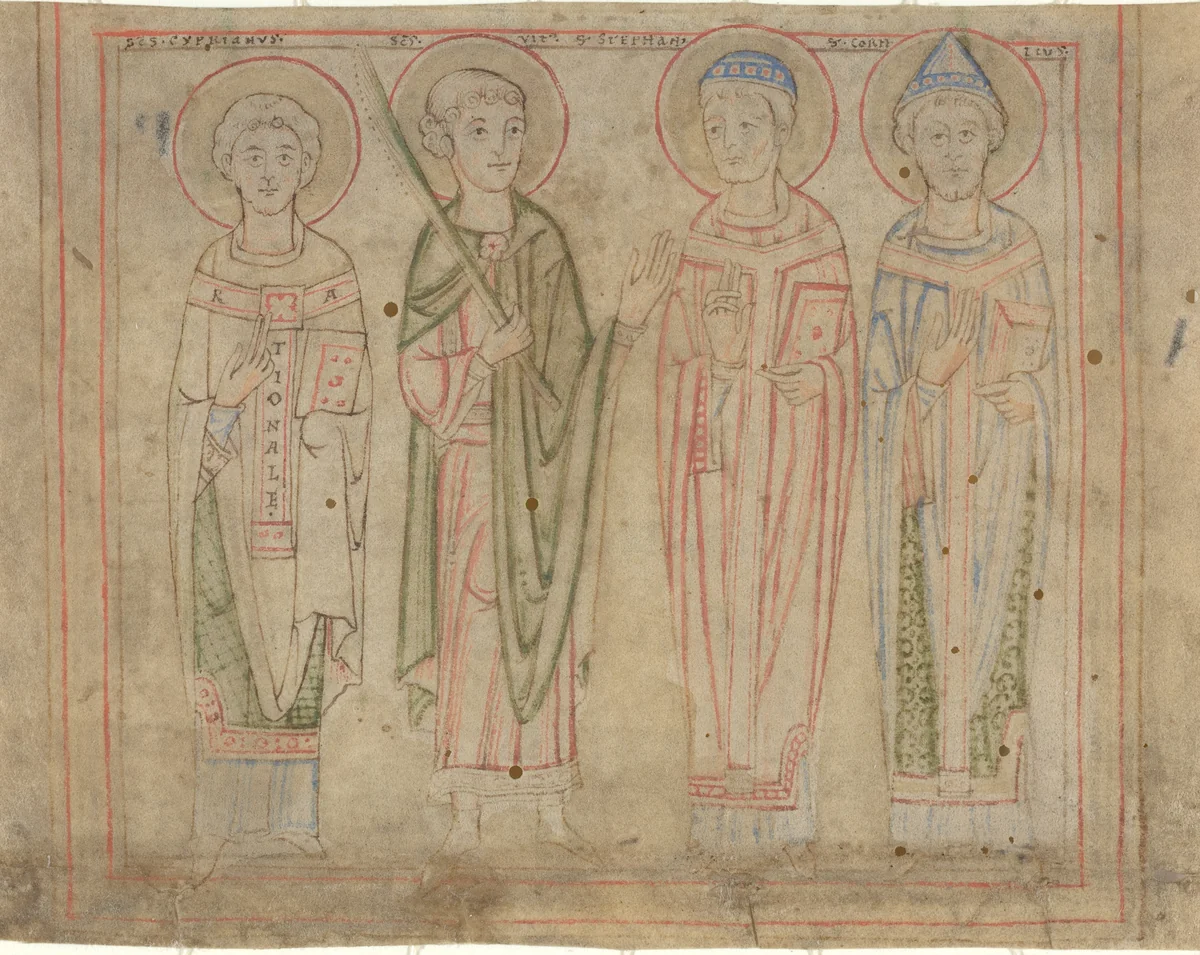 SC̅S. CYPRIANVS.
SC̅S. VIT⁹. S. STEPHAN⁹
S. CORN LIVS.
R A
TIONALE.